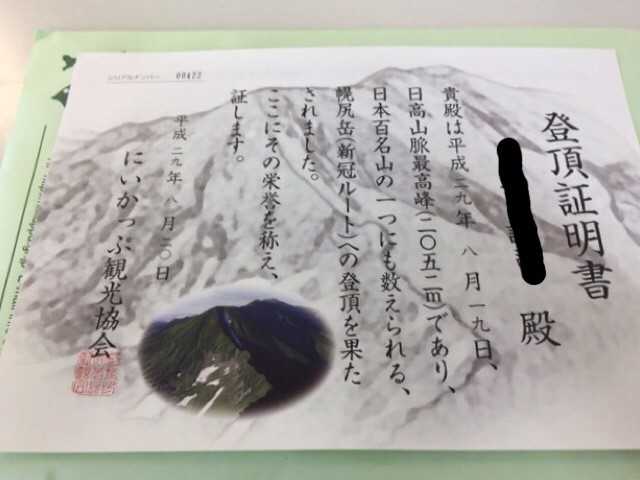 シリアルナンバー 00422
登頂証明書
殿
貴殿は平成二九年 八月一九日、
日高山脈最高峰(二〇五二m)であり、
日本百名山の一つにも数えられる、
幌尻岳(新冠ルート)への登頂を果た
されました。
ここにその栄誉を称え、
証します。
平成二九年 八月二〇日
にいかっぷ観光協会